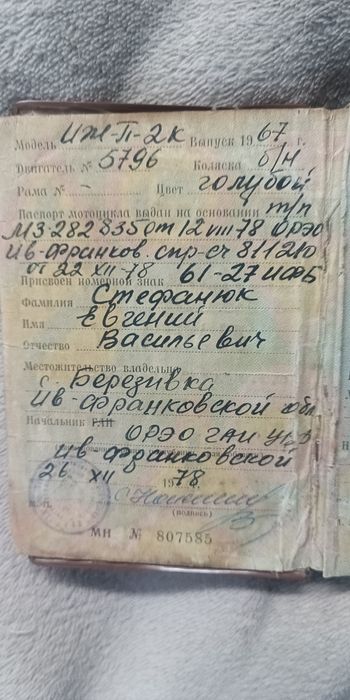 Модель ИЖ-П-2К Выпуск 1967 г.
Двигатель № 5796 Коляска б/н
Рама № - Цвет голубой
Паспорт мотоцикла выдан на основании т/п
МЗ-282835 от 12 VIII-78 ОРЭО
Ив-Франков. спр-сч 811210
от 22 XII-78 61-27 ИФБ
Присвоен номерной знак
Фамилия Стефанюк
Имя Евгений
Отчество Васильевич
Местожительство владельца
с. Березивка
Ив-Франковской обл
Начальник ГАИ ОРЭО ГАИ УВД
Ив Франковской
26 XII 1978
м.п.
(подпись)
МН № 807585